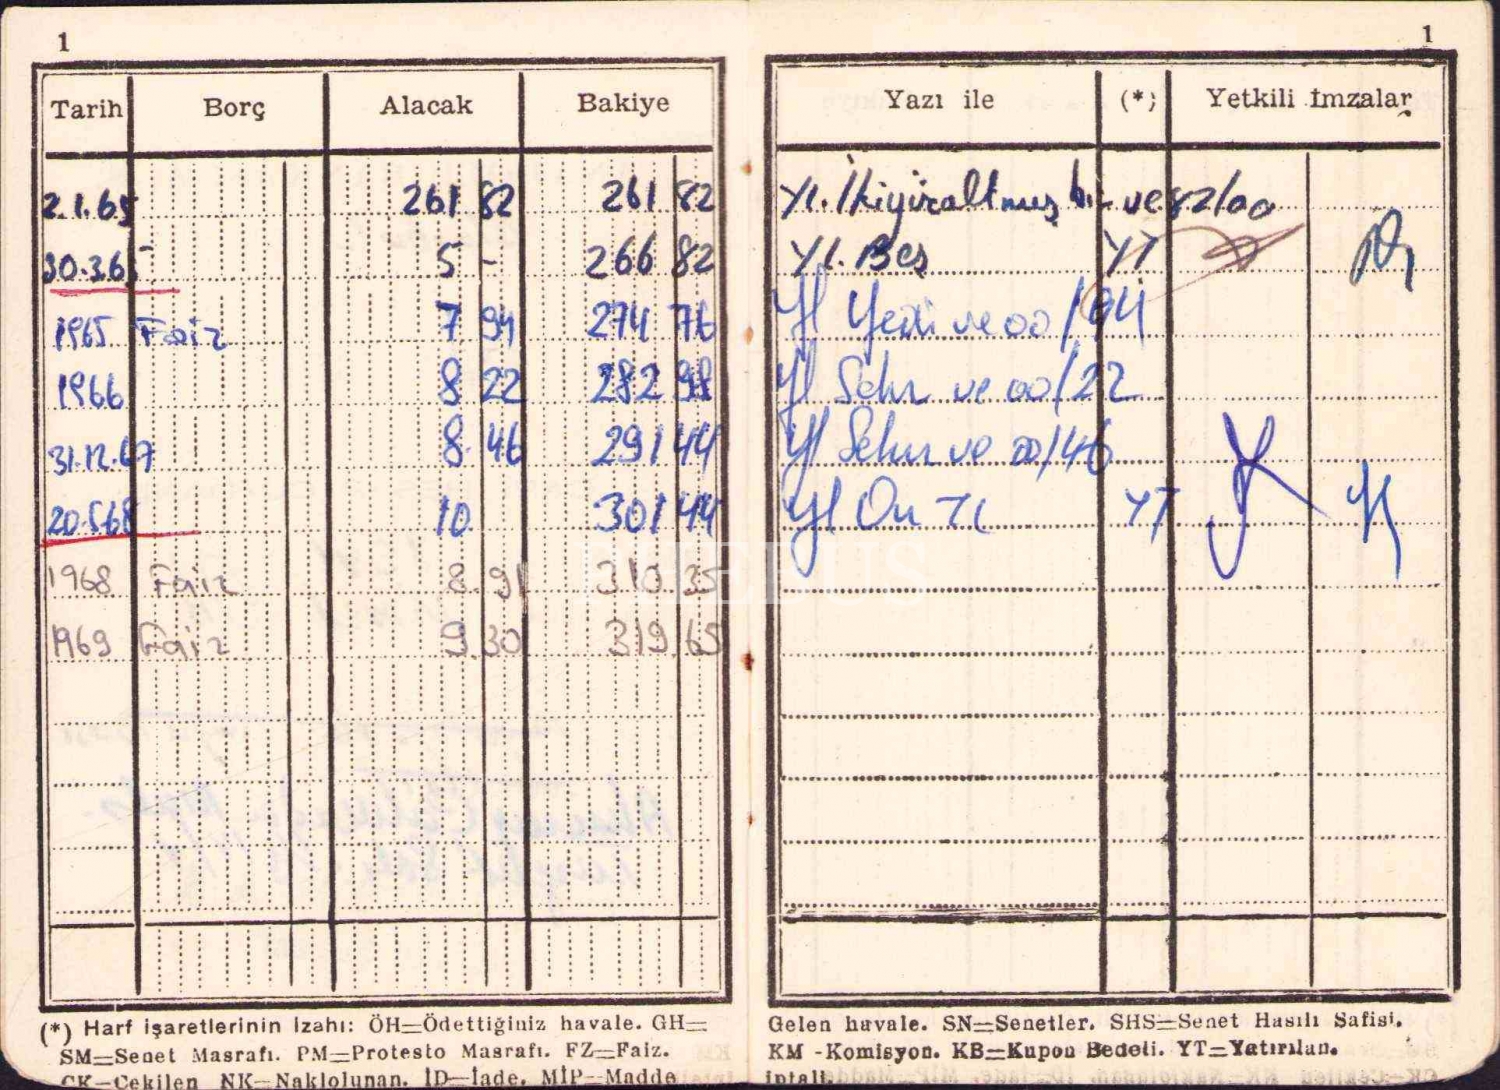 1
Tarih Borç Alacak Bakiye
2.1.65 261 82 261 82
30.3.65 5 - 266 82
1965 Faiz 7 94 274 76
1966 8 22 282 98
31.12.67 8 46 291 44
20.5.68 10 301 44
1968 Faiz 8 91 310 35
1969 Faiz 9 30 319 65
(*) Harf işaretlerinin izahı: ÖH=Ödettiğiniz havale. GH=
SM=Senet Masrafı. PM=Protesto Masrafı. FZ=Faiz.
ÇK=Çekilen NK=Naklolunan. İD=İade. MİP=Madde
1
Yazı ile (*) Yetkili İmzalar
Yl. İkiyüzaltmış bir ve 82/00
Yl. Beş YT
Yl Yedi ve 00/94
Yl Sekiz ve 00/22
Yl Sekiz ve 00/46
Yl On TL YT
Gelen havale. SN=Senetler. SHS=Senet Hasılı Safisi.
KM -Komisyon. KB=Kupon Bedeli. YT=Yatırılan.
iptali.
PHEBUS